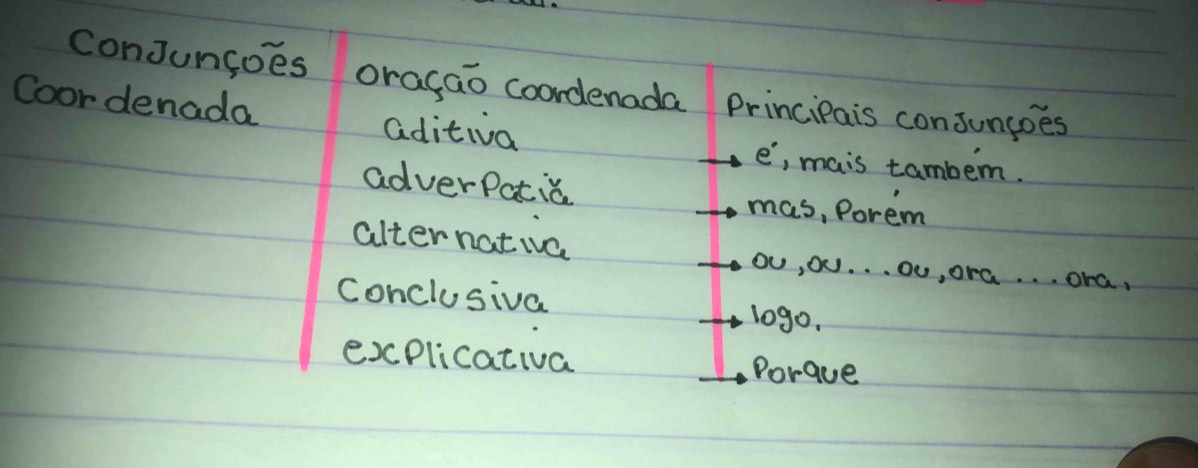 Conjunções
Coordenada
oração coordenada
aditiva
adverpatiă
alternativa
conclusiva
explicativa
Principais conjunções
→ é, mais também.
→ mas, Porém
→ ou, ou...ou, ora...ora,
→ logo.
→ Porque